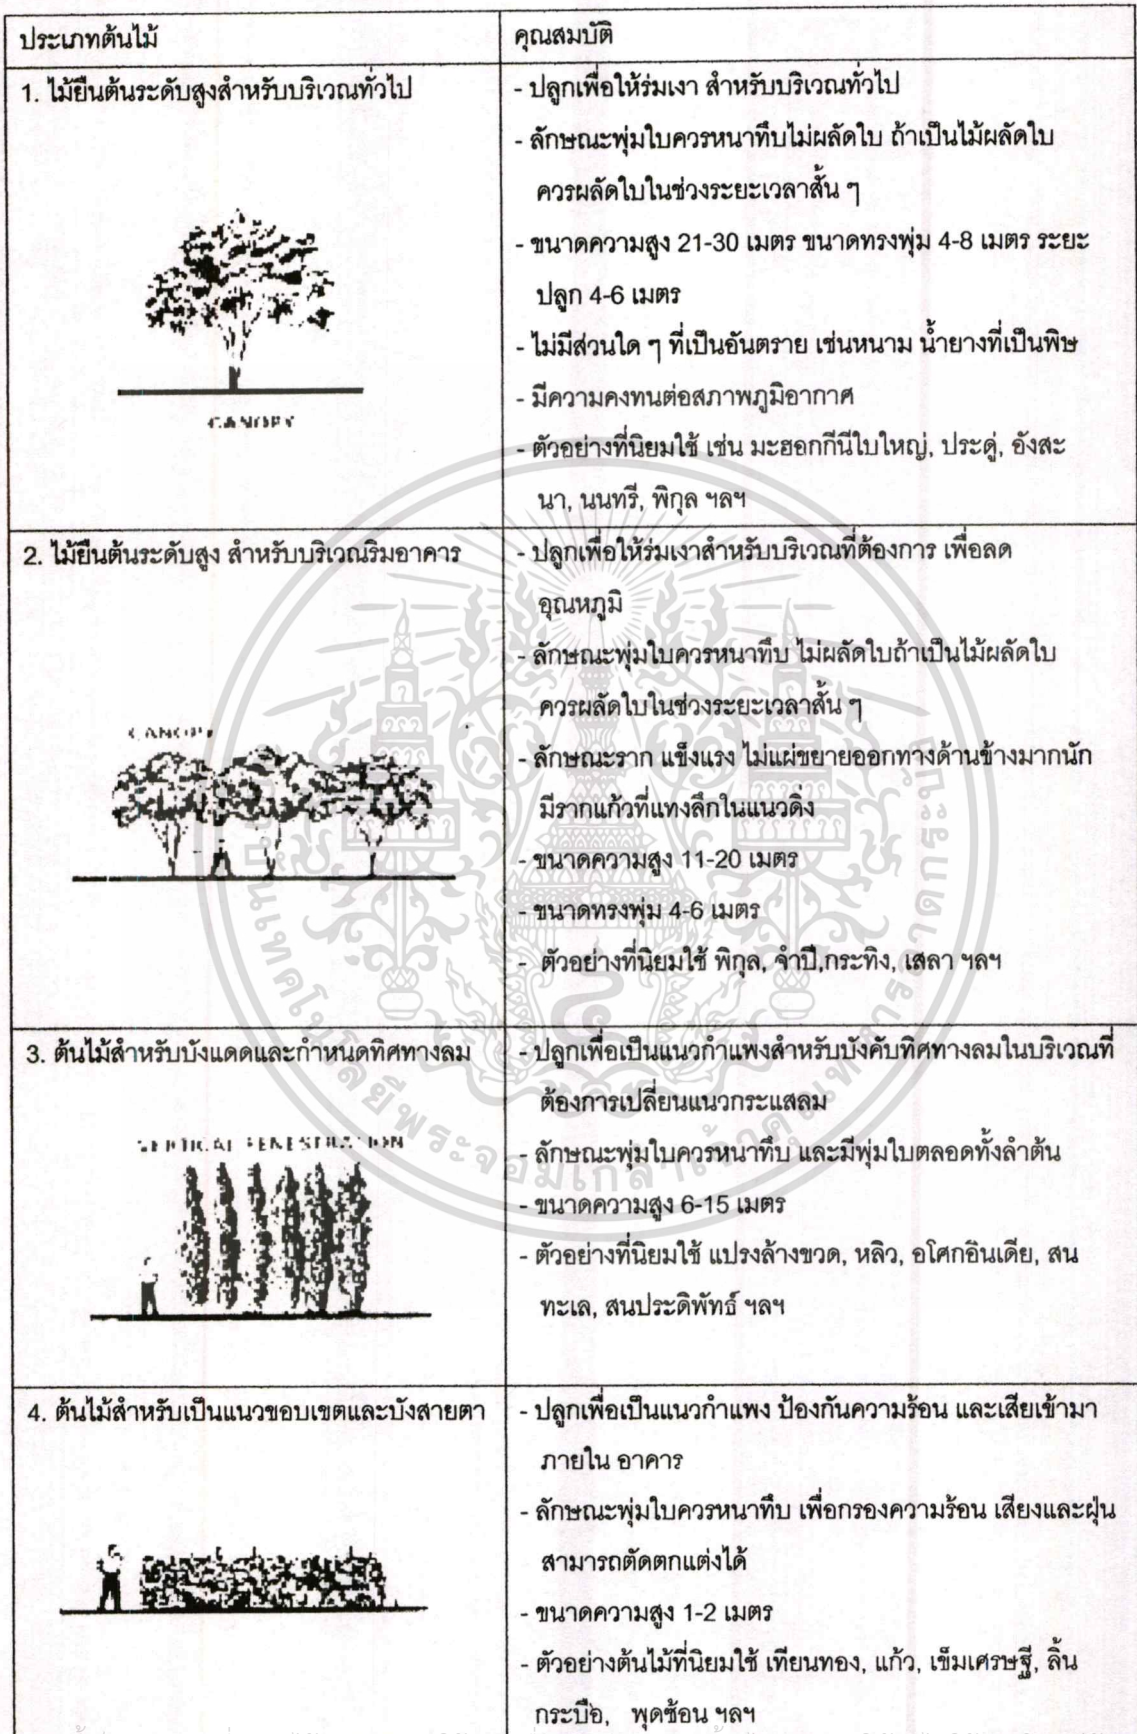 ประเภทต้นไม้
คุณสมบัติ
1. ไม้ยืนต้นระดับสูงสำหรับบริเวณทั่วไป
CANOPY
- ปลูกเพื่อให้ร่มเงา สำหรับบริเวณทั่วไป
- ลักษณะพุ่มใบควรหนาทึบไม่ผลัดใบ ถ้าเป็นไม้ผลัดใบ
ควรผลัดใบในช่วงระยะเวลาสั้น ๆ
- ขนาดความสูง 21-30 เมตร ขนาดทรงพุ่ม 4-8 เมตร ระยะ
ปลูก 4-6 เมตร
- ไม่มีส่วนใด ๆ ที่เป็นอันตราย เช่นหนาม น้ำยางที่เป็นพิษ
- มีความคงทนต่อสภาพภูมิอากาศ
- ตัวอย่างที่นิยมใช้ เช่น มะฮอกกีนีใบใหญ่, ประดู่, อังสะ
นา, นนทรี, พิกุล ฯลฯ
2. ไม้ยืนต้นระดับสูง สำหรับบริเวณริมอาคาร
CANOPY
- ปลูกเพื่อให้ร่มเงาสำหรับบริเวณที่ต้องการ เพื่อลด
อุณหภูมิ
- ลักษณะพุ่มใบควรหนาทึบ ไม่ผลัดใบถ้าเป็นไม้ผลัดใบ
ควรผลัดใบในช่วงระยะเวลาสั้น ๆ
- ลักษณะราก แข็งแรง ไม่แผ่ขยายออกทางด้านข้างมากนัก
มีรากแก้วที่แทงลึกในแนวดิ่ง
- ขนาดความสูง 11-20 เมตร
- ขนาดทรงพุ่ม 4-6 เมตร
- ตัวอย่างที่นิยมใช้ พิกุล, จำปี,กระทิง, เสลา ฯลฯ
3. ต้นไม้สำหรับบังแดดและกำหนดทิศทางลม
VERTICAL FENESTRATION
- ปลูกเพื่อเป็นแนวกำแพงสำหรับบังคับทิศทางลมในบริเวณที่
ต้องการเปลี่ยนแนวกระแสลม
- ลักษณะพุ่มใบควรหนาทึบ และมีพุ่มใบตลอดทั้งลำต้น
- ขนาดความสูง 6-15 เมตร
- ตัวอย่างที่นิยมใช้ แปรงล้างขวด, หลิว, อโศกอินเดีย, สน
ทะเล, สนประดิพัทธ์ ฯลฯ
4. ต้นไม้สำหรับเป็นแนวขอบเขตและบังสายตา
- ปลูกเพื่อเป็นแนวกำแพง ป้องกันความร้อน และเสียเข้ามา
ภายใน อาคาร
- ลักษณะพุ่มใบควรหนาทึบ เพื่อกรองความร้อน เสียงและฝุ่น
สามารถตัดตกแต่งได้
- ขนาดความสูง 1-2 เมตร
- ตัวอย่างต้นไม้ที่นิยมใช้ เทียนทอง, แก้ว, เข็มเศรษฐี, ลิ้น
กระบือ, พุดซ้อน ฯลฯ